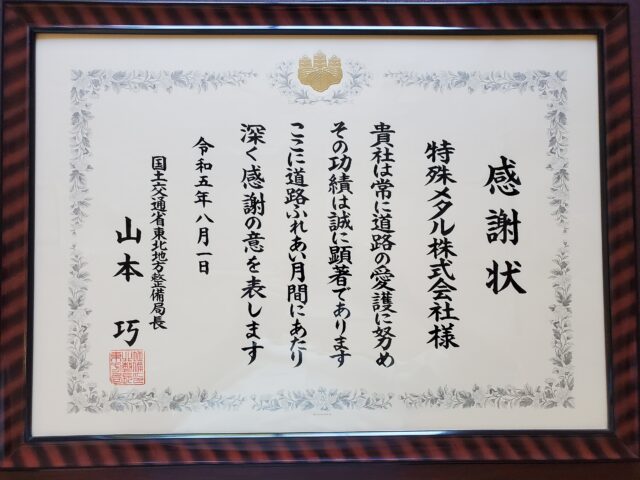 感謝状
特殊メタル株式会社様
貴社は常に道路の愛護に努め
その功績は誠に顕著であります
ここに道路ふれあい月間にあたり
深く感謝の意を表します
令和五年八月一日
国土交通省東北地方整備局長
山本巧